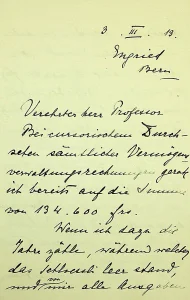 3. III. 13.
Engried
Bern
Verehrter Herr Professor
Bei cursorischem Durch-
sehen sämtlicher Vermögens
verwaltungsrechnungen gerate
ich bereits auf die Summe
von 134.600 frs.
Wenn ich dazu die
Jahre zähle, während welcher
das Schlössli leer stand,
und mir alle Ausgaben